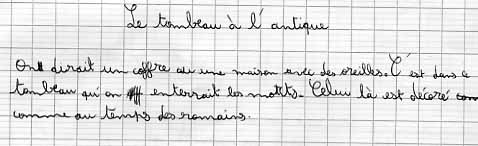 Le tombeau à l'antique
On dirait un coffre ou une maison avec des oreilles. C'est dans ce
tombeau qu'on enterrait les morts. Celui là est décoré com
comme au temps des romains.